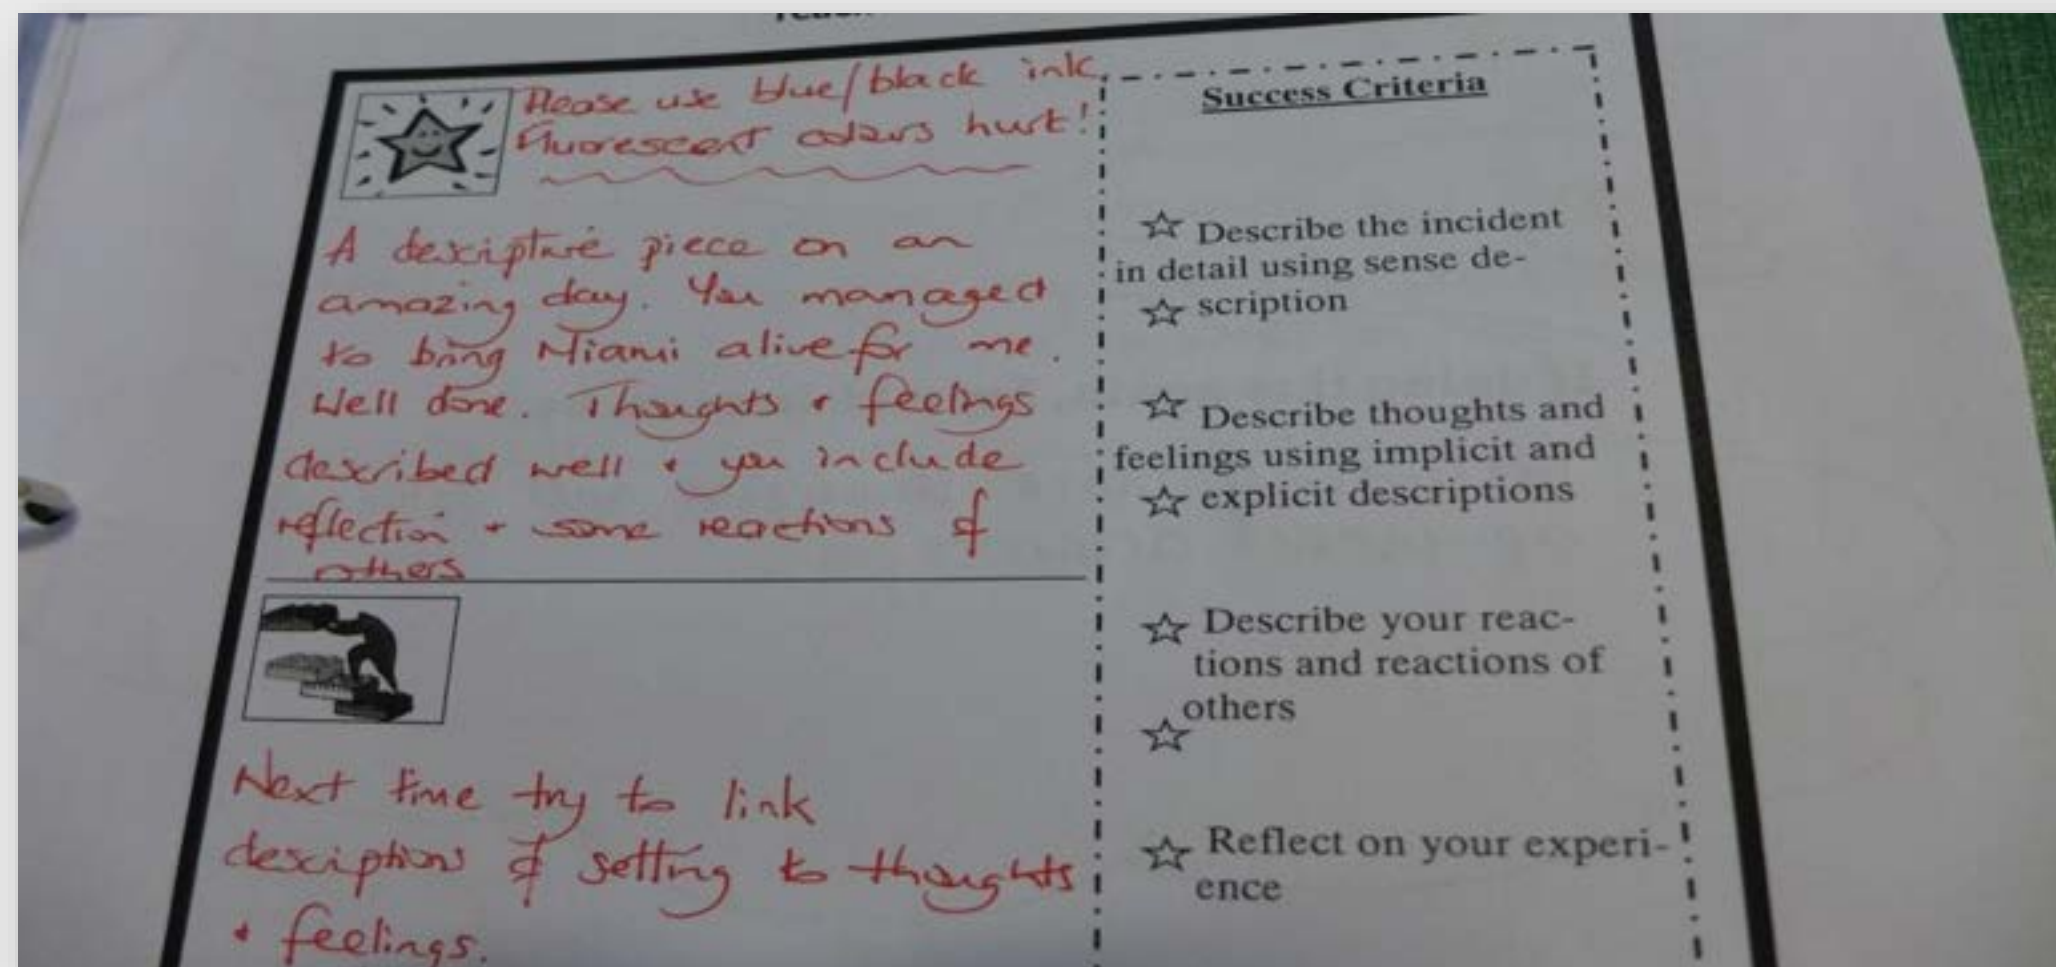 Please use blue/black ink.
Fluorescent colours hurt!
A descriptive piece on an
amazing day. You managed
to bring Miami alive for me.
Well done. Thoughts + feelings
described well + you include
reflection + some reactions of
others
Next time try to link
desciptions of setting to thoughts
+ feelings.
Success Criteria
Describe the incident
in detail using sense de-
scription
Describe thoughts and
feelings using implicit and
explicit descriptions
Describe your reac-
tions and reactions of
others
Reflect on your experi-
ence